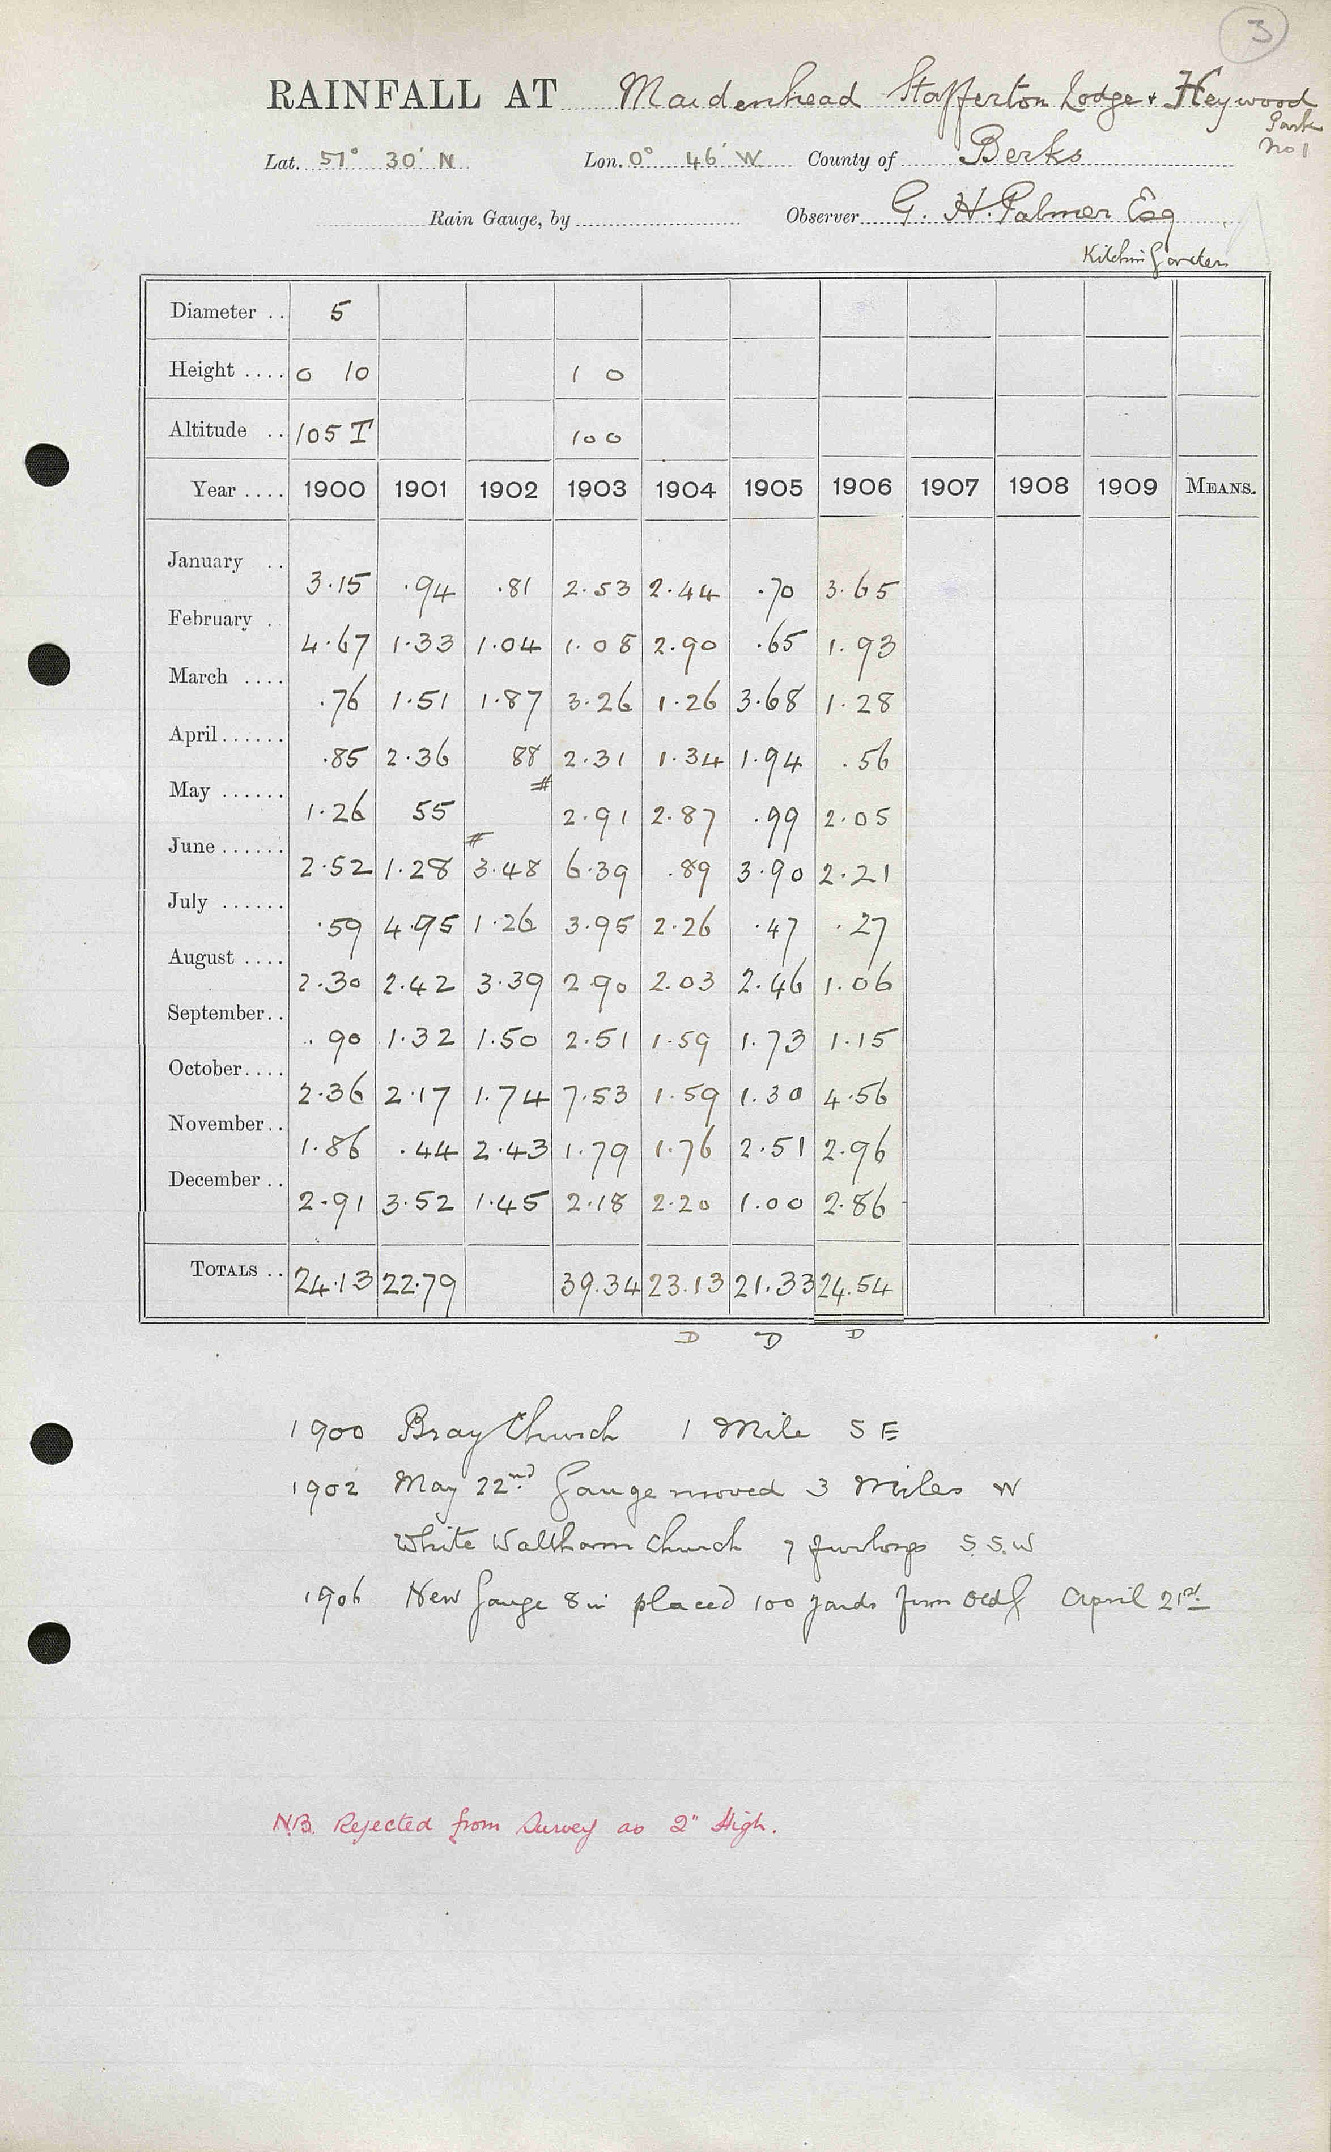 3
RAINFALL AT Maidenhead Stafferton Lodge & Heywood
Park
No 1
Lat. 51° 30' N Lon. 0° 46' W County of Berks
Rain Gauge, by Observer G. H. Palmer Esq
Kitchin Garden
Diameter .. 5
Height .... 0 10 1 0
Altitude .. 105 T 100
Year .... 1900 1901 1902 1903 1904 1905 1906 1907 1908 1909 MEANS.
January .. 3.15 .94 .81 2.53 2.44 .70 3.65
February . 4.67 1.33 1.04 1.08 2.90 .65 1.93
March .... .76 1.51 1.87 3.26 1.26 3.68 1.28
April...... .85 2.36 88 2.31 1.34 1.94 .56
May ...... 1.26 55 # 2.91 2.87 .99 2.05
June...... 2.52 1.28 # 3.48 6.39 .89 3.90 2.21
July ...... .59 4.95 1.26 3.95 2.26 .47 .27
August .... 2.30 2.42 3.39 2.90 2.03 2.46 1.06
September.. .90 1.32 1.50 2.51 1.59 1.73 1.15
October.... 2.36 2.17 1.74 7.53 1.59 1.30 4.56
November.. 1.86 .44 2.43 1.79 1.76 2.51 2.96
December .. 2.91 3.52 1.45 2.18 2.20 1.00 2.86
TOTALS .. 24.13 22.79 39.34 23.13 21.33 24.54
D D D
1900 Bray Church 1 Mile S E
1902 May 22nd Gauge moved 3 Miles W
White Waltham Church 7 furlongs S.S.W
1906 New Gauge 8 in placed 100 yards from Old G April 21st
N.B. Rejected from Survey as 2" High.